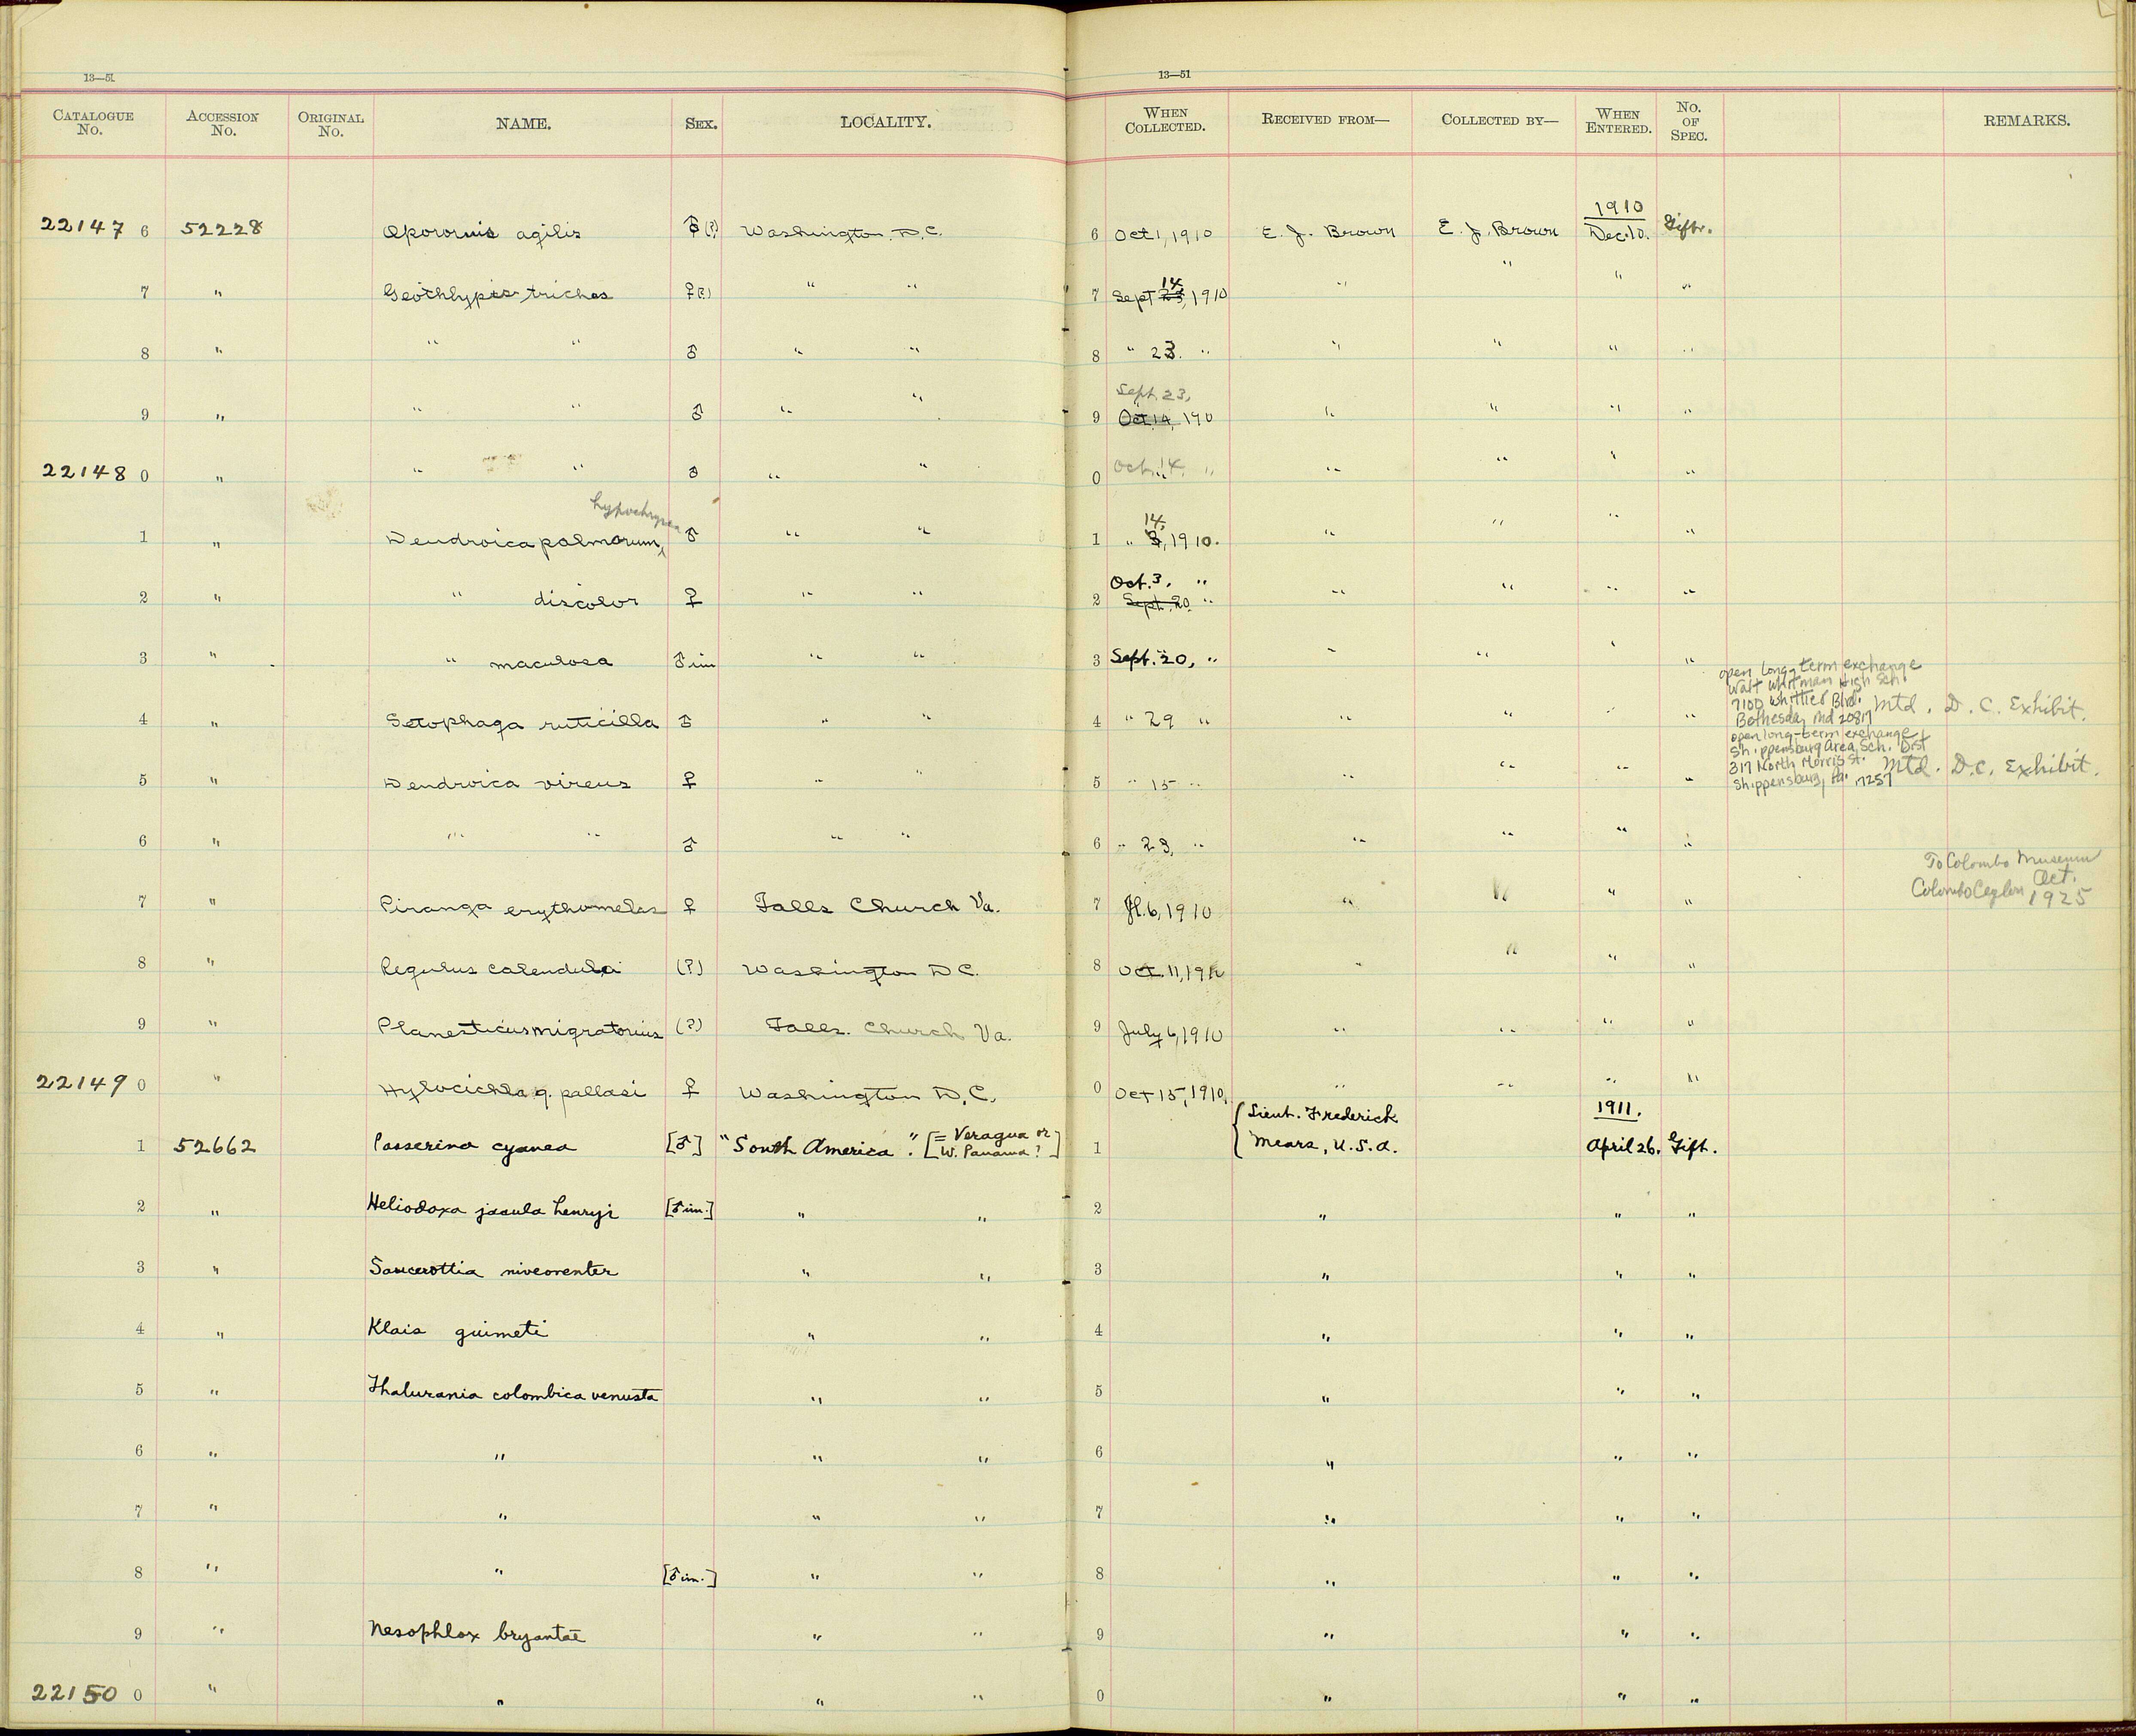 13—51
13—51
CATALOGUE No. ACCESSION No. ORIGINAL No. NAME. SEX. LOCALITY. WHEN COLLECTED. RECEIVED FROM— COLLECTED BY— WHEN ENTERED. No. OF SPEC. REMARKS.
22147 6 52228 Oporornis agilis ♂(?) Washington. D.C. 6 Oct 1, 1910 E. J. Brown E. J. Brown 1910 Dec. 10. Gift.
7 " Geothlypis trichas ♀(?) " " 7 Sept 23, 14, 1910 " " " "
8 " " " ♂ " " 8 " 23. " " " " "
9 " " " ♂ " " 9 Sept. 23, Oct. 14, 190 " " " "
22148 0 " " " ♂ " " 0 Oct. 14, " " " " "
1 " Dendroica palmarum, hypochrysea ♂ " " 1 " 14, 3, 1910. " " " "
2 " " discolor ♀ " " 2 Oct. 3. " Sept. 20 " " " " "
3 " " maculosa ♂ im " " 3 Sept. 20, " " " " "
4 " Setophaga ruticilla ♂ " " 4 " 29 " " " " " open long-term exchange
Walt Whitman High Sch.
7100 Whittier Blvd.
Bethesda, Md 20817 Mtd. D. C. Exhibit.
5 " Dendroica virens ♀ " " 5 " 15 " " " " " open long-term exchange
Shippensburg Area Sch. Dist
317 North Morris St.
Shippensburg, Pa. 17257 Mtd. D.C. Exhibit.
6 " " " ♂ " " 6 " 23, " " " " "
7 " Piranga erythomelas ♀ Falls Church Va. 7 Jl. 6, 1910 " " " " To Colombo Museum
Colombo Ceylon Oct. 1925
8 " Regulus calendula (?) Washington D C. 8 Oct. 11, 1910 " " " "
9 " Planesticus migratorius (?) Falls. Church Va. 9 July 6, 1910 " " " "
22149 0 " Hylocichla g. pallasi ♀ Washington D.C. 0 Oct 15, 1910, " " " "
1 52662 Passerina cyanea [♂] "South America". [= Veragua or W. Panama?] 1 Lieut. Frederick Mears, U.S.A. 1911. April 26. Gift.
2 " Heliodoxa jacula henryi [♂ im.] " " 2 " " "
3 " Saucerottia niveoventer " " 3 " " "
4 " Klais guimeti " " 4 " " "
5 " Thalurania colombica venusta " " 5 " " "
6 " " " " 6 " " "
7 " " " " 7 " " "
8 " " [♂ im.] " " 8 " " "
9 " Nesophlox bryantæ " " 9 " " "
22150 0 " " " " 0 " " "